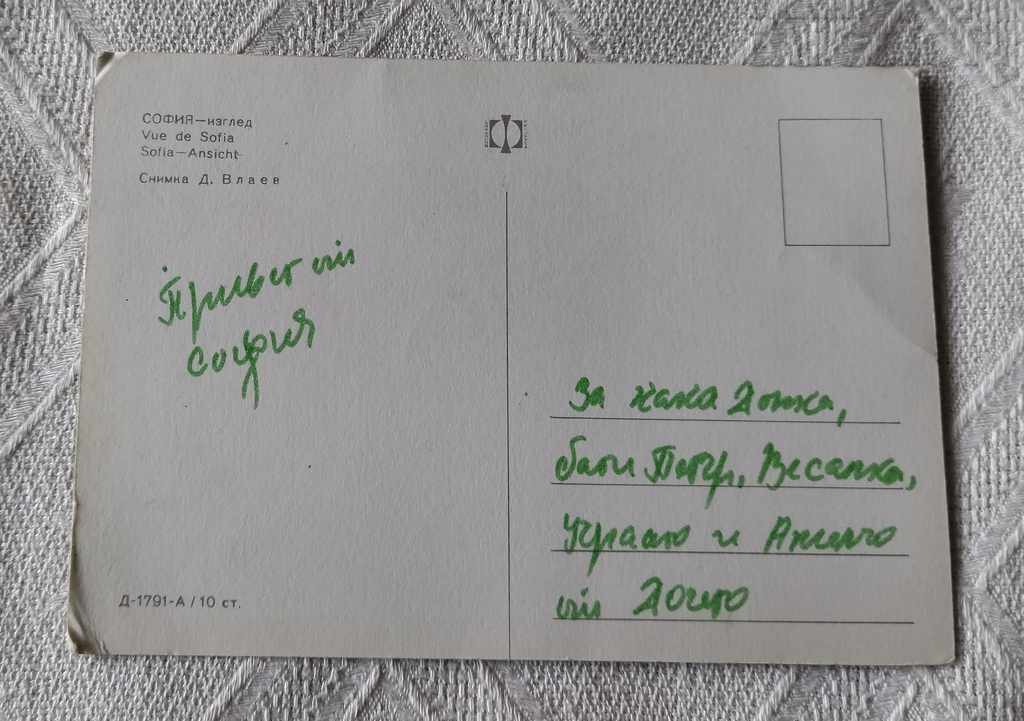 СОФИЯ—изглед
Vue de Sofia
Sofia—Ansicht
Снимка Д. Влаев
Привет от
София
За кака Донка,
бати Петър, Веселка,
и
от Дочето
Д-1791-А / 10 ст.